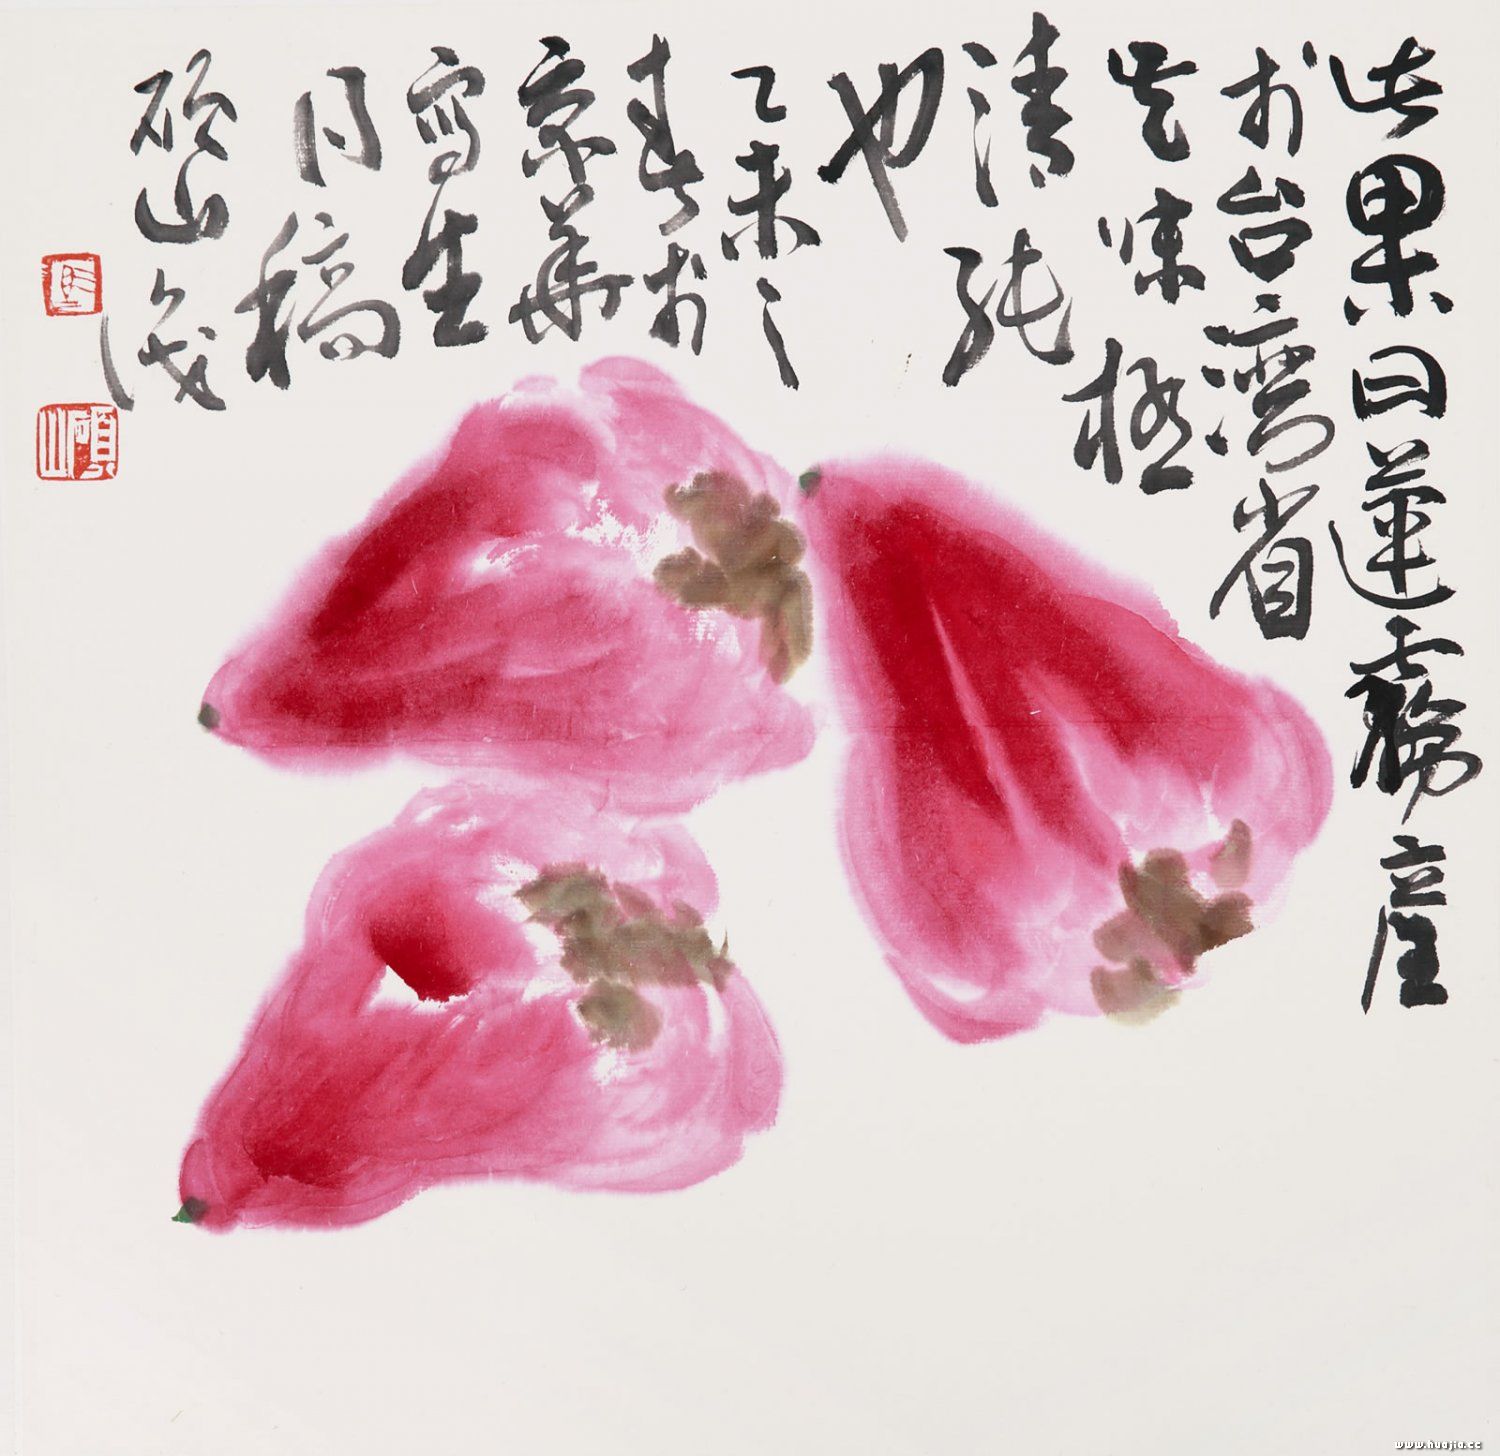 此果曰蓮霧産
於台灣省
其味極
清純
也
乙未之
春於
京華
寫生
同稿
硕山識
碩山
www.huajia.cc